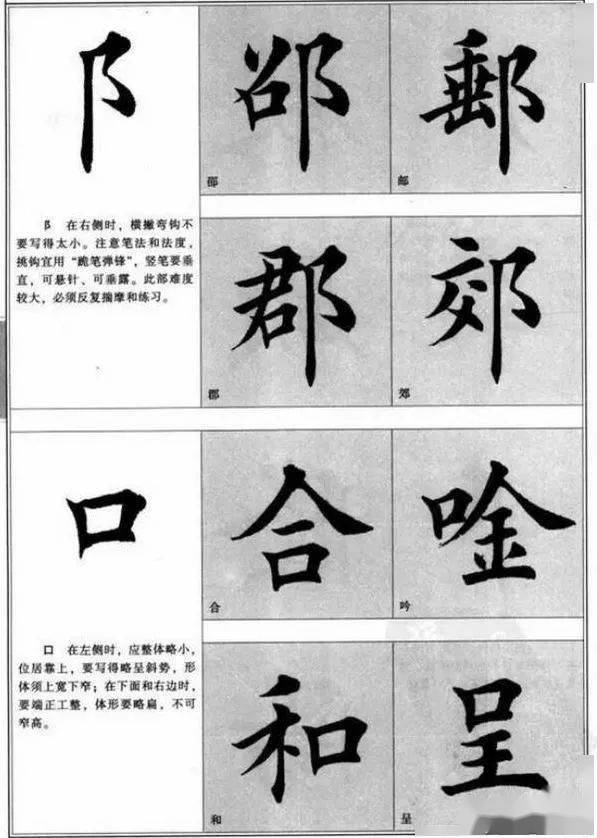 阝
邵
郵
邵
邮
阝 在右侧时，横撇弯钩不
要写得太小。注意笔法和法度，
挑钩宜用“跪笔弹锋”，竖笔要垂
直，可悬针、可垂露。此部难度
较大，必须反复揣摩和练习。
郡
郊
郡
郊
口
合
唫
合
吟
口 在左侧时，应整体略小，
位居靠上，要写得略呈斜势，形
体须上宽下窄；在下面和右边时，
要端正工整，体形要略扁，不可
窄高。
和
呈
和
呈